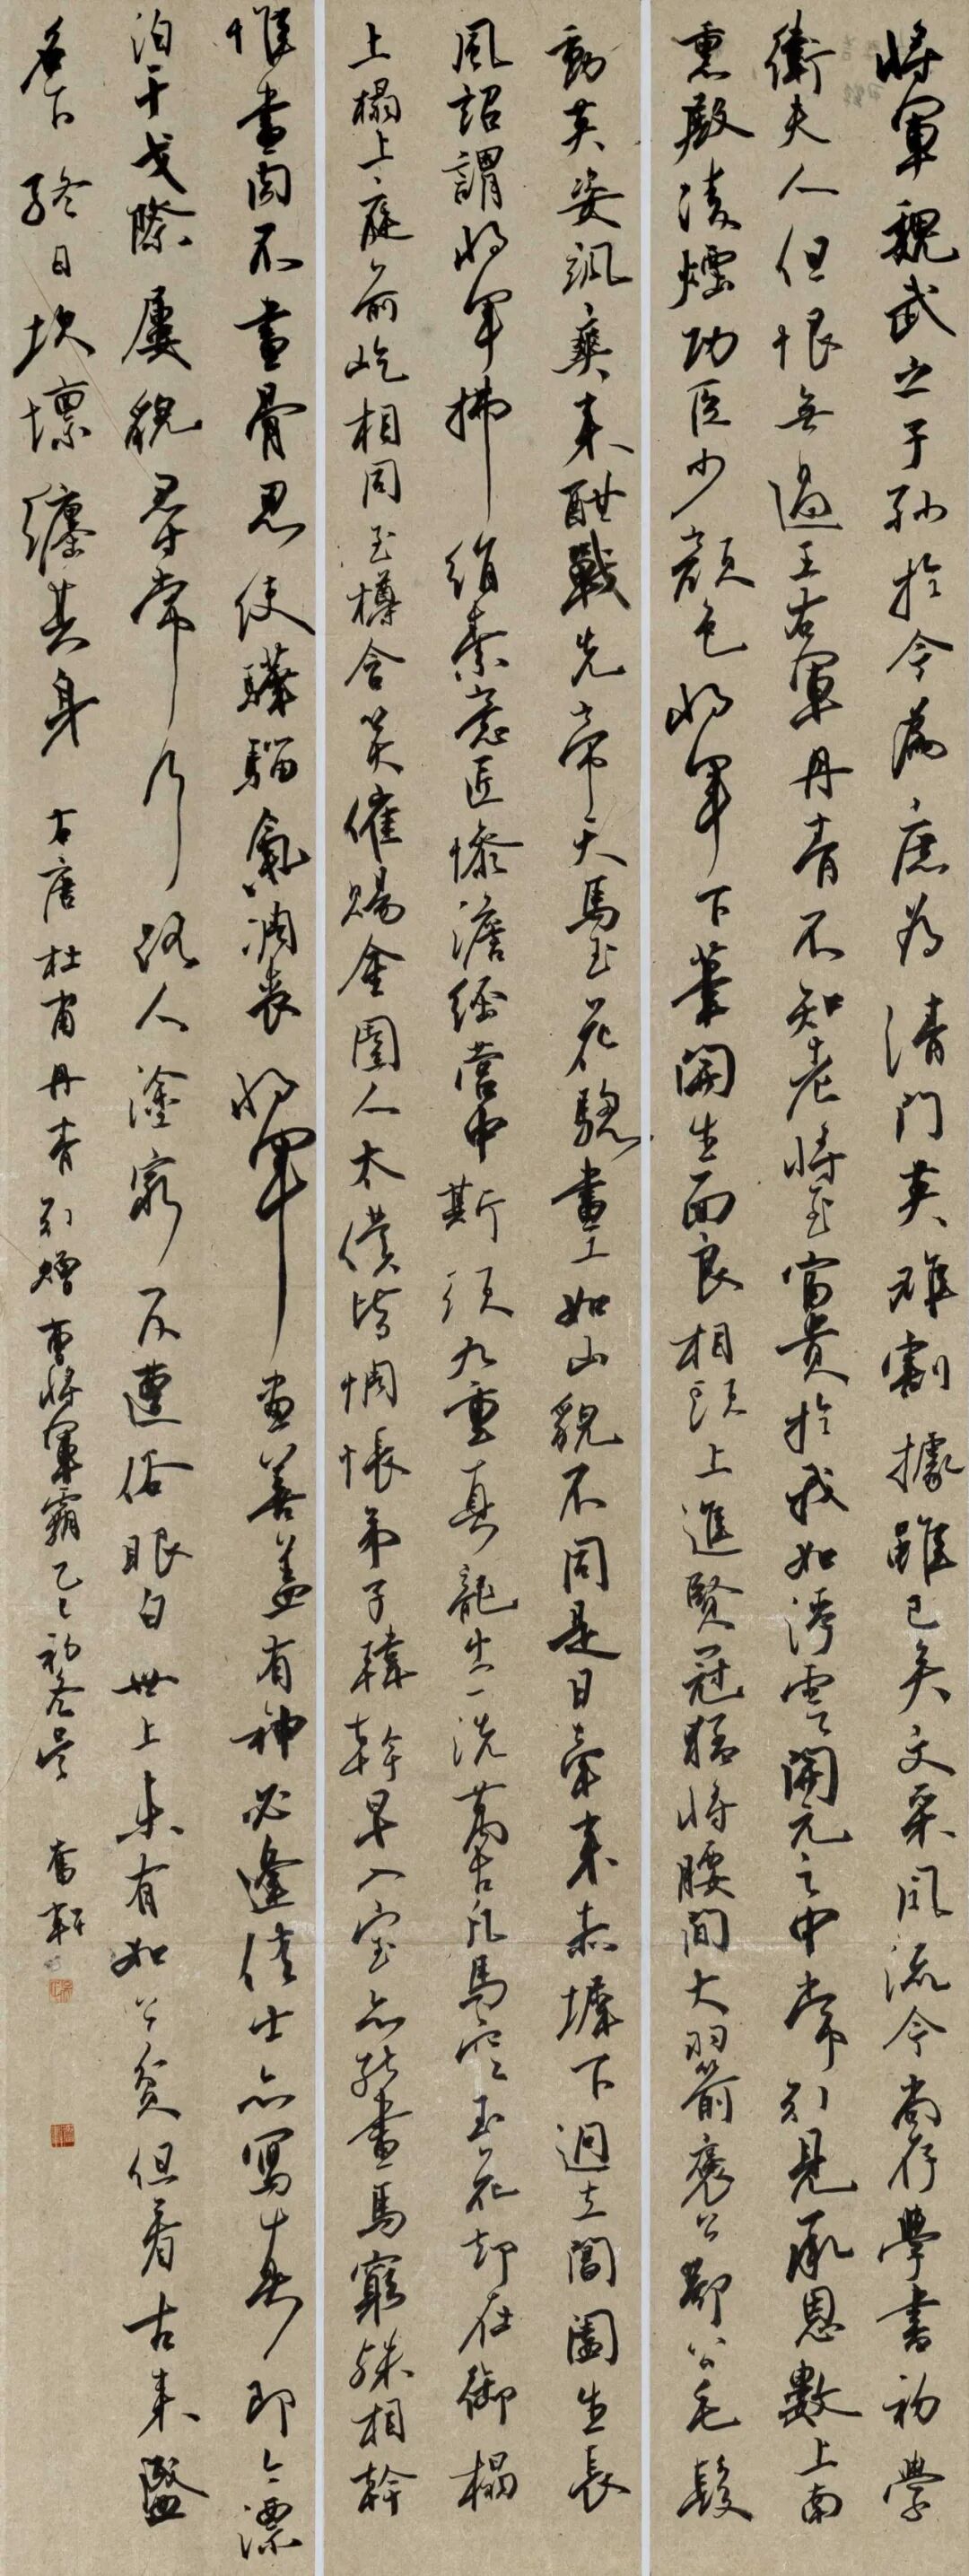 將軍魏武之子孫於今為庶為清門英雄割據雖已矣文采風流今尚存學書初學
衛夫人但恨無過王右軍丹青不知老將至富貴於我如浮雲開元之中常引見承恩數上南
熏殿凌煙功臣少顏色將軍下筆開生面良相頭上進賢冠猛將腰間大羽箭褒公鄂公毛髮
動英姿颯爽来酣戰先帝天馬玉花驄畫工如山貌不同是日牽来赤墀下迥立閶闔生長
風詔謂將軍拂絹素意匠慘澹經營中斯須九重真龍出一洗萬古凡馬空玉花卻在御榻
上榻上庭前屹相向至樽含笑催賜金圉人太僕皆惆悵弟子韓幹早入室亦能畫馬窮殊相幹
惟畫肉不畫骨忍使驊騮氣凋喪將軍畫善蓋有神必逢佳士亦寫真即今漂
泊干戈際屢貌尋常行路人塗窮反遭俗眼白世上未有如公貧但看古来盛
名下終日坎壈纏其身 右唐杜甫丹青引贈曹將軍霸乙巳初冬 奮軒